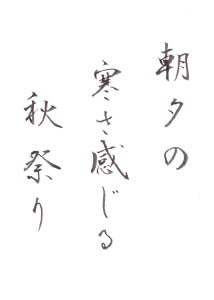 朝夕の
寒さ感じる
秋祭り